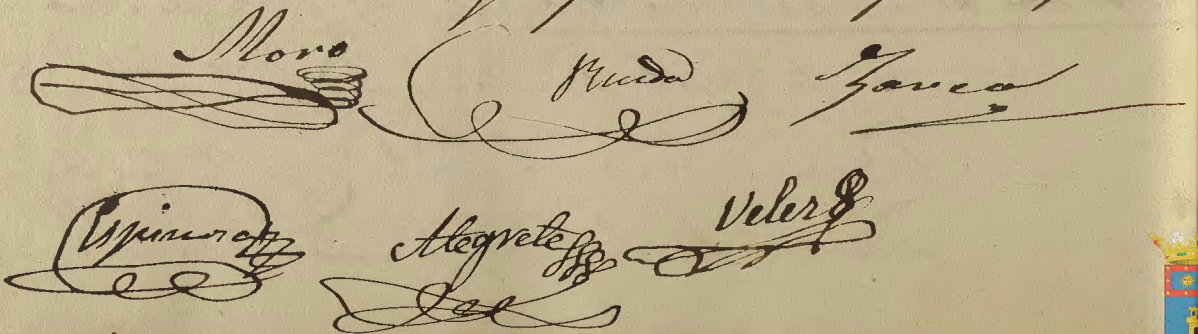 Moro Rueda Barea
Espinosa Alegrete Veler